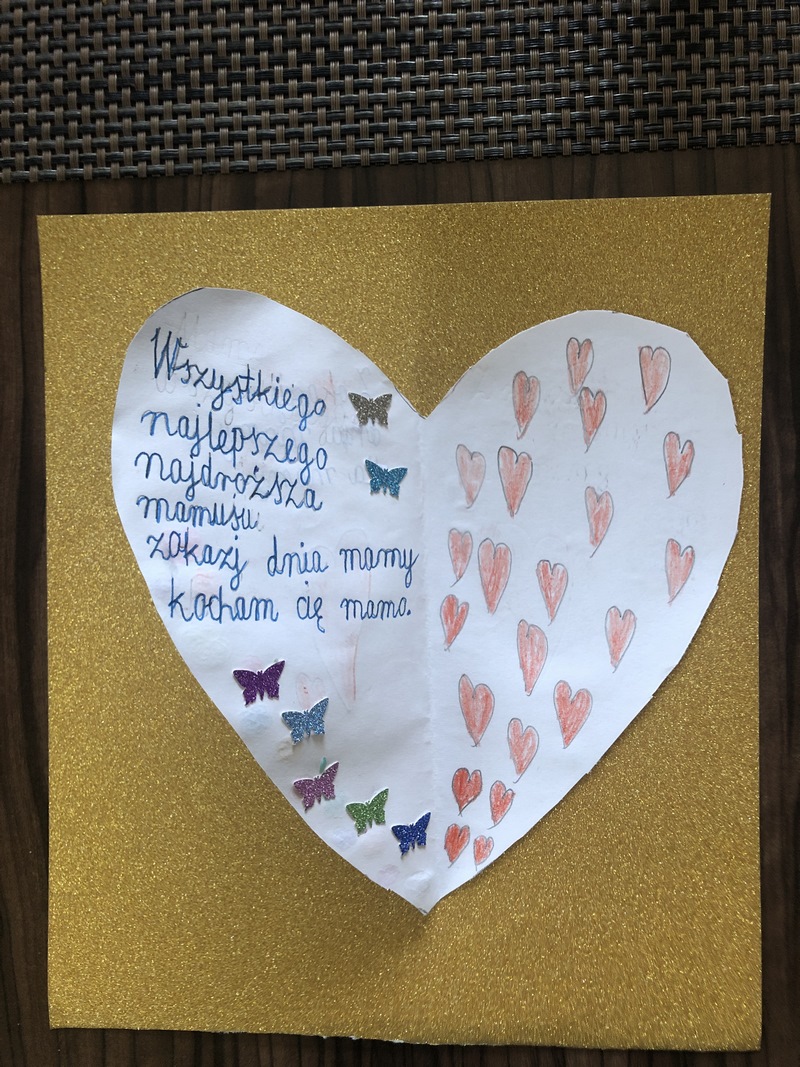 Wszystkiego
najlepszego
najdroższa
mamusiu
zokazj dnia mamy
kocham cię mamo.